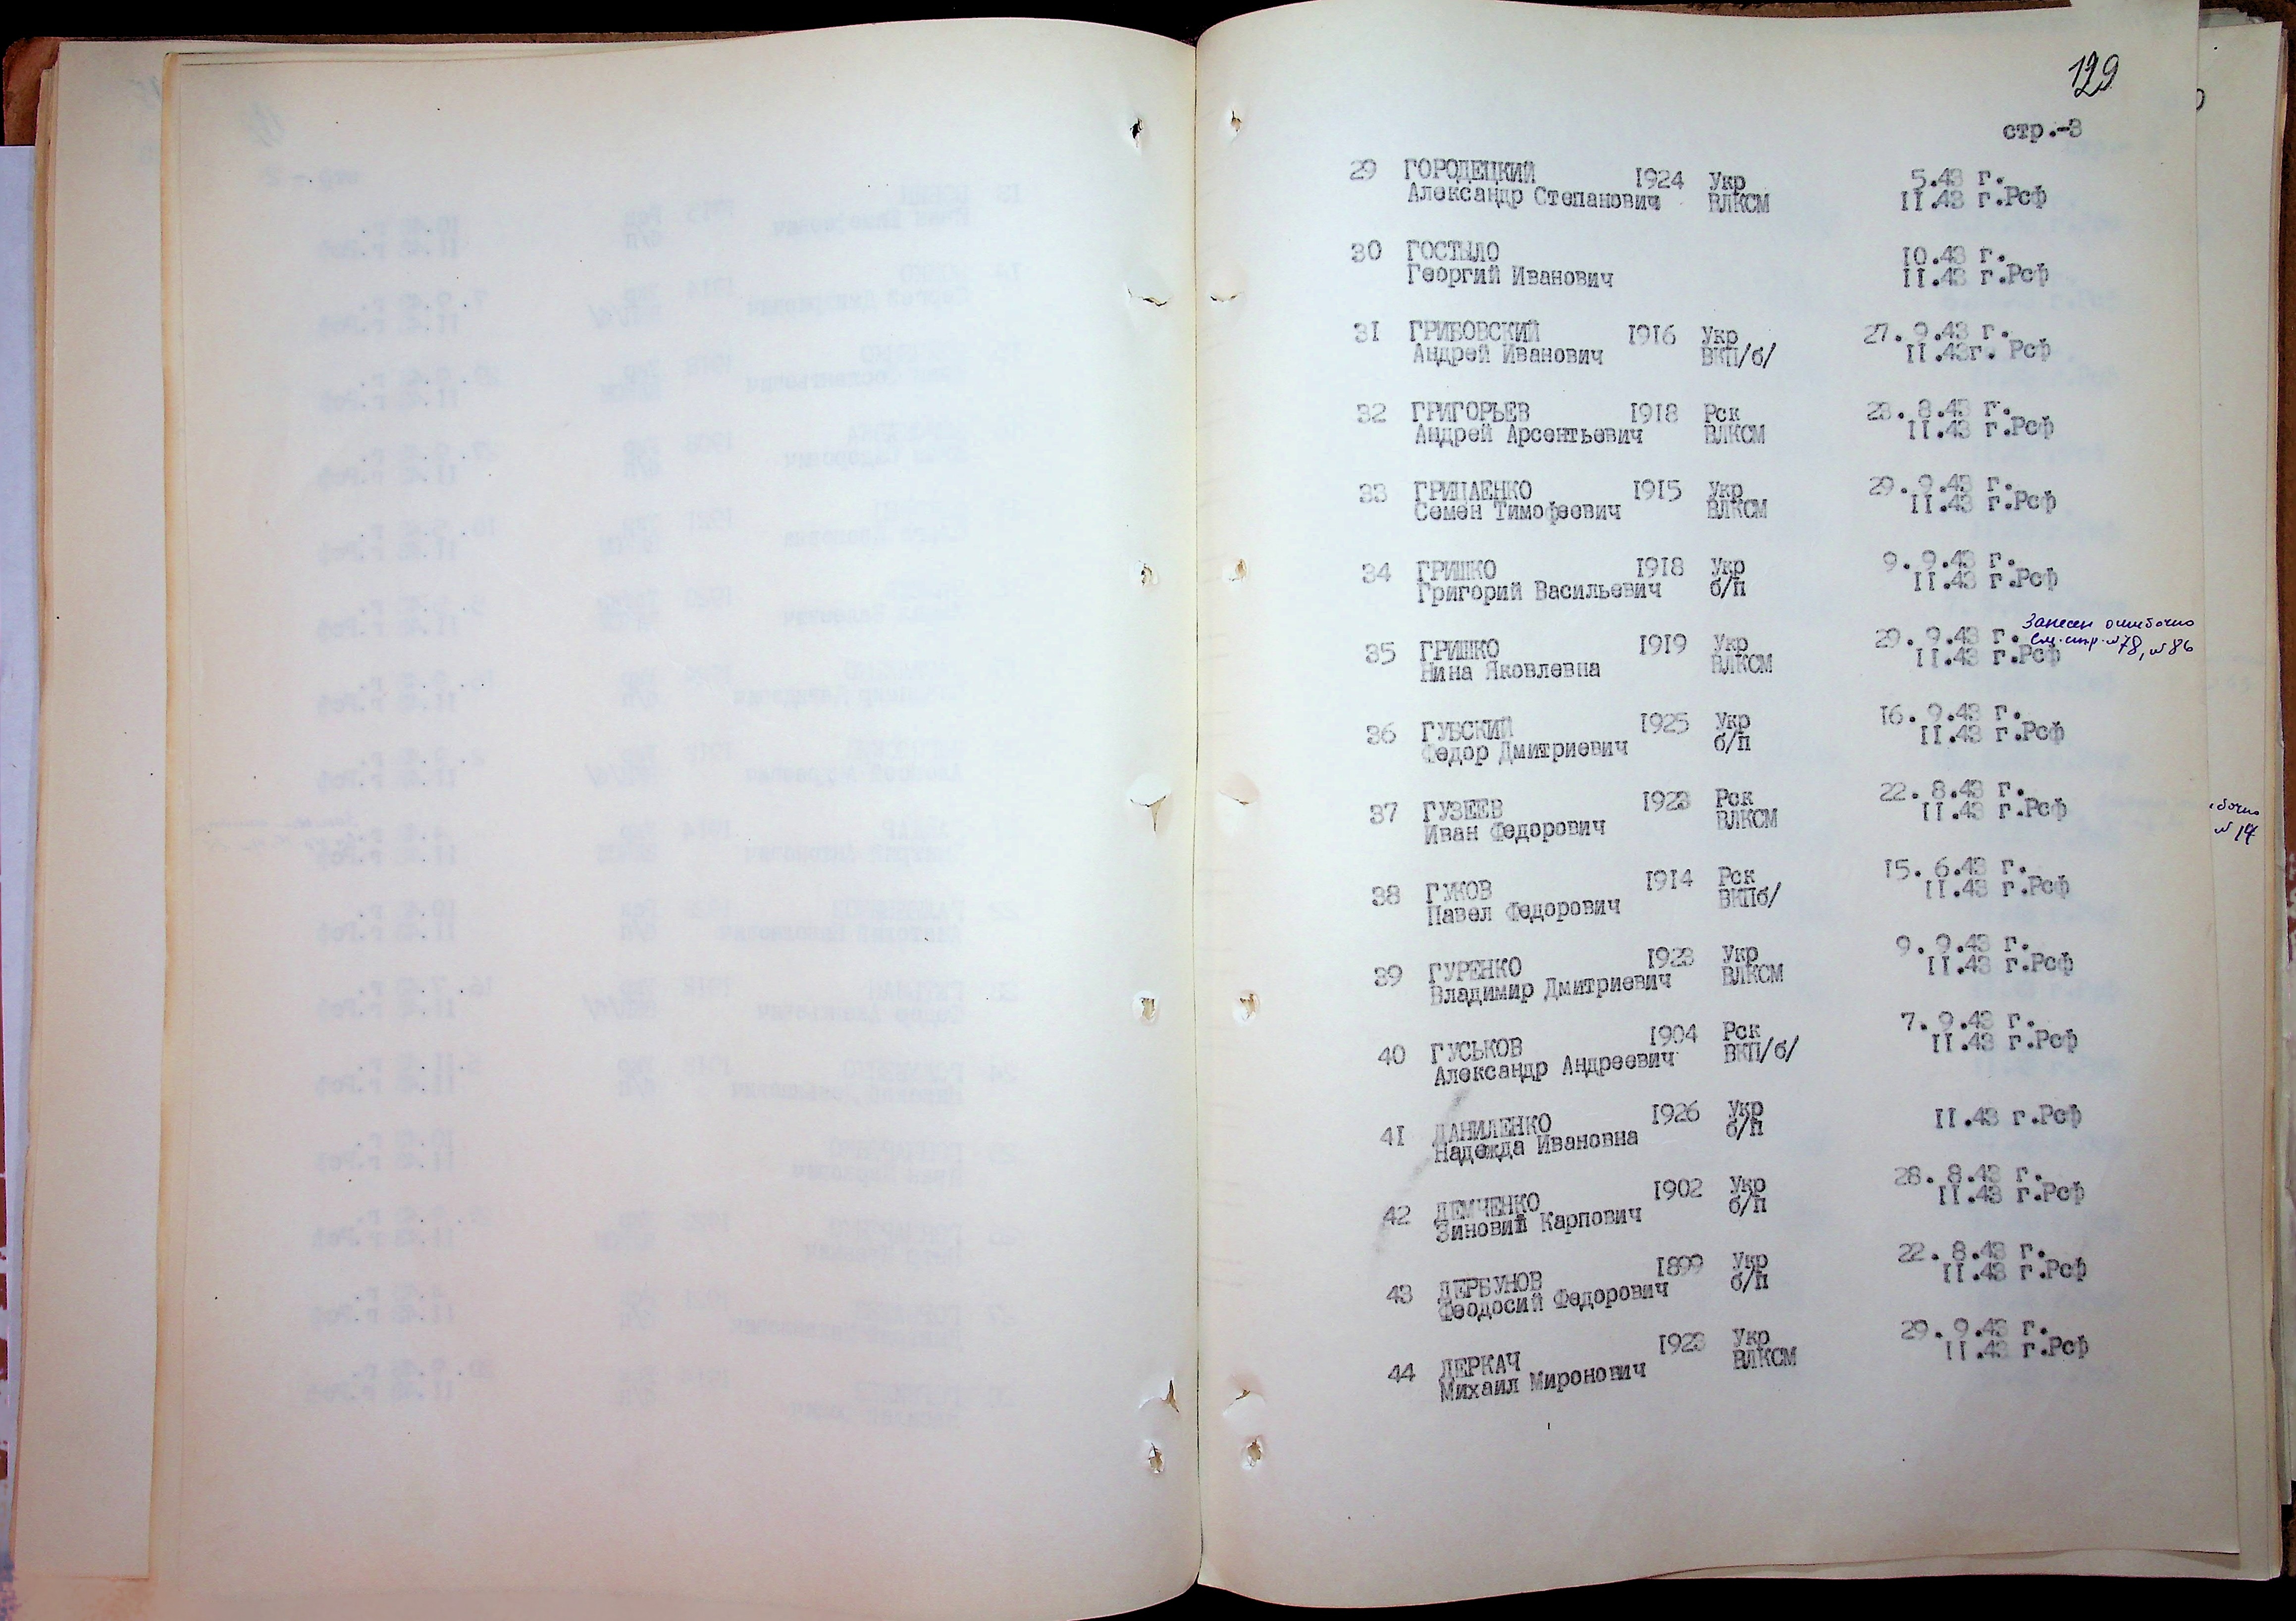 129
стр.-3
29 ГОРОДЕЦКИЙ 1924 Укр 5.43 г.
Александр Степанович ВЛКСМ II.43 г.Рсф
30 ГОСТЫЛО 10.43 г.
Георгий Иванович II.43 г.Рсф
31 ГРИБОВСКИЙ 1916 Укр 27.9.43 г.
Андрей Иванович ВКП/б/ II.43г. Рсф
32 ГРИГОРЬЕВ 1918 Рск 28.8.43 г.
Андрей Арсентьевич ВЛКСМ II.43 г.Рсф
33 ГРИЦАЕНКО 1915 Укр 29.9.43 г.
Семен Тимофеевич ВЛКСМ II.43 г.Рсф
34 ГРИШКО 1918 Укр 9.9.43 г.
Григорий Васильевич б/п II.43 г.Рсф
Занесен ошибочно
35 ГРИШКО 1919 Укр 29.9.43 г. См. стр. №78, №86
Нина Яковлевна ВЛКСМ II.43 г.Рсф
36 ГУБСКИЙ 1925 Укр 16.9.43 г.
Федор Дмитриевич б/п II.43 г.Рсф
37 ГУЗЕЕВ 1923 Рск 22.8.43 г.
Иван Федорович ВЛКСМ II.43 г.Рсф
38 ГУКОВ 1914 Рск 15.6.43 г.
Павел Федорович ВКПб/ II.43 г.Рсф
39 ГУРЕНКО 1923 Укр 9.9.43 г.
Владимир Дмитриевич ВЛКСМ II.43 г.Рсф
40 ГУСЬКОВ 1904 Рск 7.9.43 г.
Александр Андреевич ВКП/б/ II.43 г.Рсф
41 ДАНИЛЕНКО 1926 Укр II.43 г.Рсф
Надежда Ивановна б/п
42 ДЕМЧЕНКО 1902 Укр 28.8.43 г.
Зиновий Карпович б/п II.43 г.Рсф
43 ДЕРБУНОВ 1899 Укр 22.8.43 г.
Феодосий Федорович б/п II.43 г.Рсф
44 ДЕРКАЧ 1923 Укр 29.9.43 г.
Михаил Миронович ВЛКСМ II.43 г.Рсф
№ 14